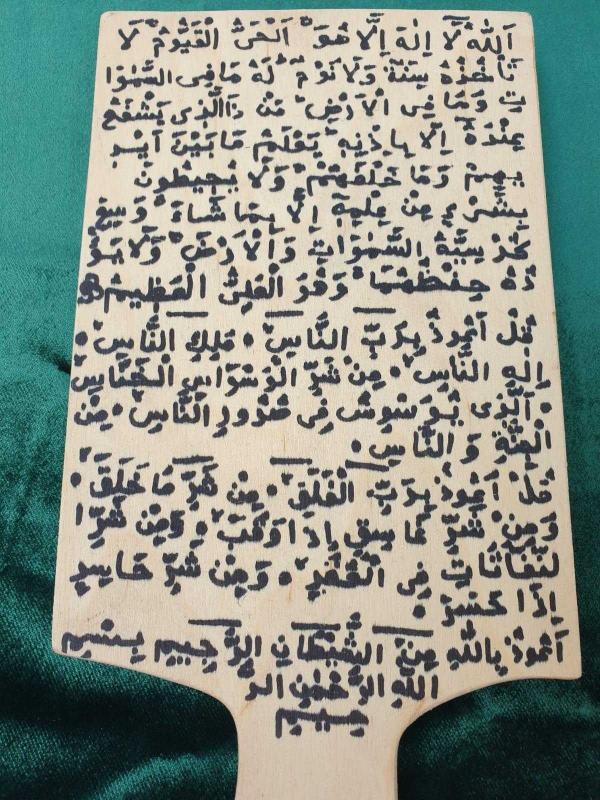 اَللّٰهُ لَآ اِلٰهَ اِلَّا هُوَ ۚ اَلْحَىُّ الْقَيُّوْمُ ۚ لَا
تَأْخُذُهٗ سِنَةٌ وَلَا نَوْمٌ ۗ لَهٗ مَا فِى السَّمٰوَا
تِ وَمَا فِى الْاَرْضِ ۗ مَنْ ذَا الَّذِى يَشْفَعُ
عِنْدَهٗٓ اِلَّا بِاِذْنِهٖ ۗ يَعْلَمُ مَا بَيْنَ اَيْدِ
يْهِمْ وَمَا خَلْفَهُمْ ۚ وَلَا يُحِيْطُوْنَ
بِشَىْءٍ مِنْ عِلْمِهٖٓ اِلَّا بِمَا شَآءَ ۚ وَسِعَ
كُرْسِيُّهُ السَّمٰوَاتِ وَالْاَرْضَ ۚ وَلَا يَـُٔوْ
دُهٗ حِفْظُهُمَا ۚ وَهُوَ الْعَلِىُّ الْعَظِيْمُ
قُلْ اَعُوْذُ بِرَبِّ النَّاسِ • مَلِكِ النَّاسِ •
اِلٰهِ النَّاسِ • مِنْ شَرِّ الْوَسْوَاسِ الْخَنَّاسِ
• اَلَّذِى يُوَسْوِسُ فِى صُدُورِ النَّاسِ • مِنَ
الْجِنَّةِ وَالنَّاسِ •
قُلْ اَعُوذُ بِرَبِّ الْفَلَقِ • مِنْ شَرِّ مَا خَلَقَ •
وَمِنْ شَرِّ غَاسِقٍ اِذَا وَقَبَ • وَمِنْ شَرِّ ا
لنَّفَّاثَاتِ فِى الْعُقَدِ • وَمِنْ شَرِّ حَاسِدٍ
اِذَا حَسَدَ •
اَعُوذُ بِاللّٰهِ مِنَ الشَّيْطَانِ الرَّجِيمِ بِسْمِ
اللّٰهِ الرَّحْمٰنِ الرَّ
حِيمِ